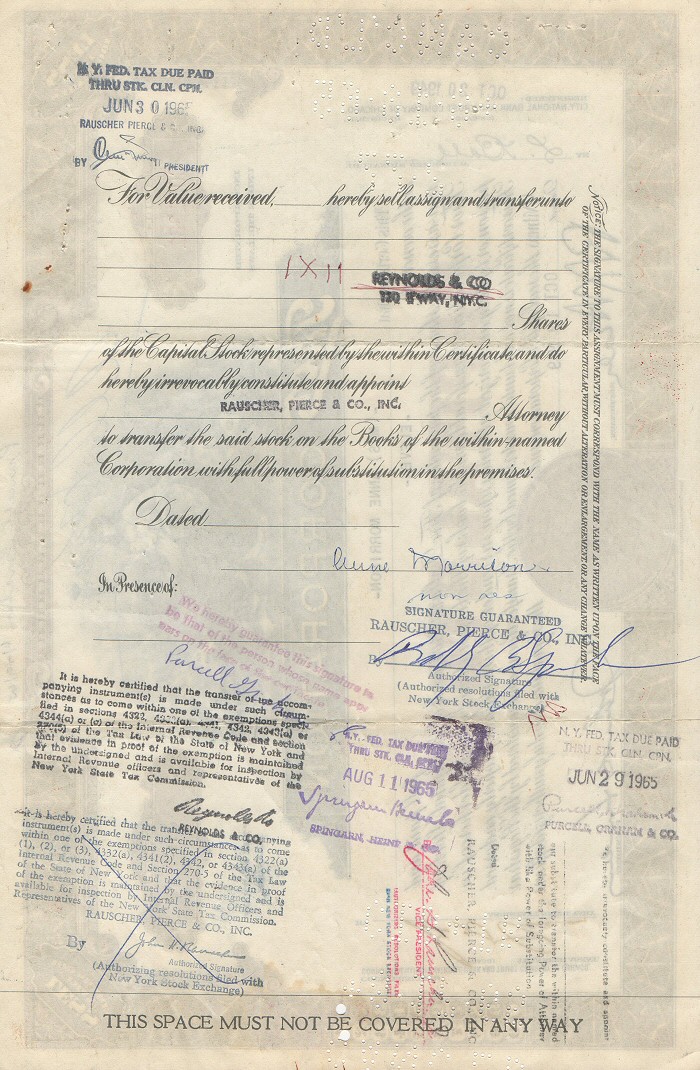 N. Y. FED. TAX DUE PAID
THRU STK. CLN. CPN.
JUN 30 1965
RAUSCHER PIERCE & CO., INC.
BY PRESIDENT
For Value received, hereby sell, assign and transfer unto
1 X 11
REYNOLDS & CO
120 B'WAY, N.Y.C.
Shares
of the Capital Stock represented by the within Certificate, and do
hereby irrevocably constitute and appoint
RAUSCHER, PIERCE & CO., INC.
Attorney
to transfer the said stock on the Books of the within-named
Corporation with full power of substitution in the premises.
Dated
Anne Morrison
In Presence of:
non res
SIGNATURE GUARANTEED
RAUSCHER, PIERCE & CO., INC.
By
Authorized Signature
(Authorized resolutions filed with
New York Stock Exchange)
NOTICE: THE SIGNATURE TO THIS ASSIGNMENT MUST CORRESPOND WITH THE NAME AS WRITTEN UPON THE FACE
OF THE CERTIFICATE IN EVERY PARTICULAR, WITHOUT ALTERATION OR ENLARGEMENT OR ANY CHANGE WHATEVER.
We hereby guarantee this signature to
be that of the person whose name appears
It is hereby certified that the transfer of the accom-
panying instrument(s) is made under such circum-
stances as to come within one of the exemptions speci-
fied in sections 4322, 4341, 4342, 4343(a) or
4344(a) or (c) of the Internal Revenue Code and section
of the Tax Law of the State of New York and
that evidence in proof of the exemption is maintained
by the undersigned and is available for inspection by
Internal Revenue officers and representatives of the
New York State Tax Commission.
Reynolds &
REYNOLDS & CO.
N.Y. FED. TAX DUE PAID
THRU STK. CLN. CPN.
AUG 11 1965
SPINGARN, HEINE & CO.
N. Y. FED. TAX DUE PAID
THRU STK. CLN. CPN.
JUN 29 1965
PURCELL, GRAHAM & CO.
It is hereby certified that the transfer of the accompanying
instrument(s) is made under such circumstances as to come
within one of the exemptions specified in section 4322(a)
(1), (2), or (3), 4332(a), 4341(2), 4342, or 4343(a) of the
Internal Revenue Code and Section 270-5 of the Tax Law
of the State of New York and that the evidence in proof
of the exemption is maintained by the undersigned and is
available for inspection by Internal Revenue Officers and
Representatives of the New York State Tax Commission.
RAUSCHER, PIERCE & CO., INC.
By
Authorized Signature
(Authorizing resolutions filed with
New York Stock Exchange)
Dated
RAUSCHER, PIERCE & CO., INC.
VICE PRESIDENT
our substitute to transfer the within named
stock under the foregoing Power of Attorney
with like Power of Substitution.
THIS SPACE MUST NOT BE COVERED IN ANY WAY